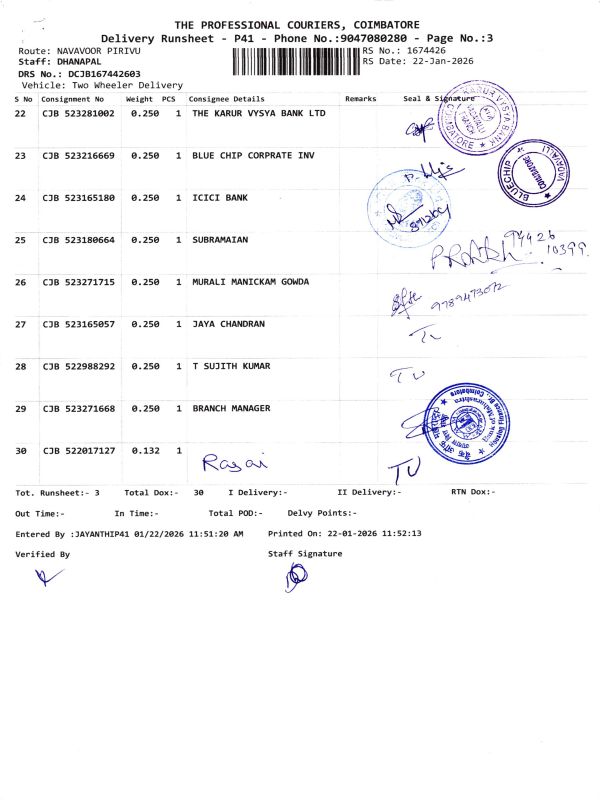 THE PROFESSIONAL COURIERS, COIMBATORE
Delivery Runsheet - P41 - Phone No.:9047080280 - Page No.:3
Route: NAVAVOOR PIRIVU RS No.: 1674426
Staff: DHANAPAL RS Date: 22-Jan-2026
DRS No.: DCJB167442603
Vehicle: Two Wheeler Delivery
S No Consignment No Weight PCS Consignee Details Remarks Seal & Signature
22 CJB 523281002 0.250 1 THE KARUR VYSYA BANK LTD
KARUR VYSYA BANK COIMBATORE
23 CJB 523216669 0.250 1 BLUE CHIP CORPRATE INV
BLUECHIP VADAVALLI COIMBATORE
24 CJB 523165180 0.250 1 ICICI BANK
25 CJB 523180664 0.250 1 SUBRAMAIAN
94426
10399
26 CJB 523271715 0.250 1 MURALI MANICKAM GOWDA
9789473072
27 CJB 523165057 0.250 1 JAYA CHANDRAN
28 CJB 522988292 0.250 1 T SUJITH KUMAR
TU
29 CJB 523271668 0.250 1 BRANCH MANAGER
Bank of Maharashtra
Housing Finance Br. Coimbatore
30 CJB 522017127 0.132 1
TU
Tot. Runsheet:- 3 Total Dox:- 30 I Delivery:- II Delivery:- RTN Dox:-
Out Time:- In Time:- Total POD:- Delvy Points:-
Entered By :JAYANTHIP41 01/22/2026 11:51:20 AM Printed On: 22-01-2026 11:52:13
Verified By Staff Signature